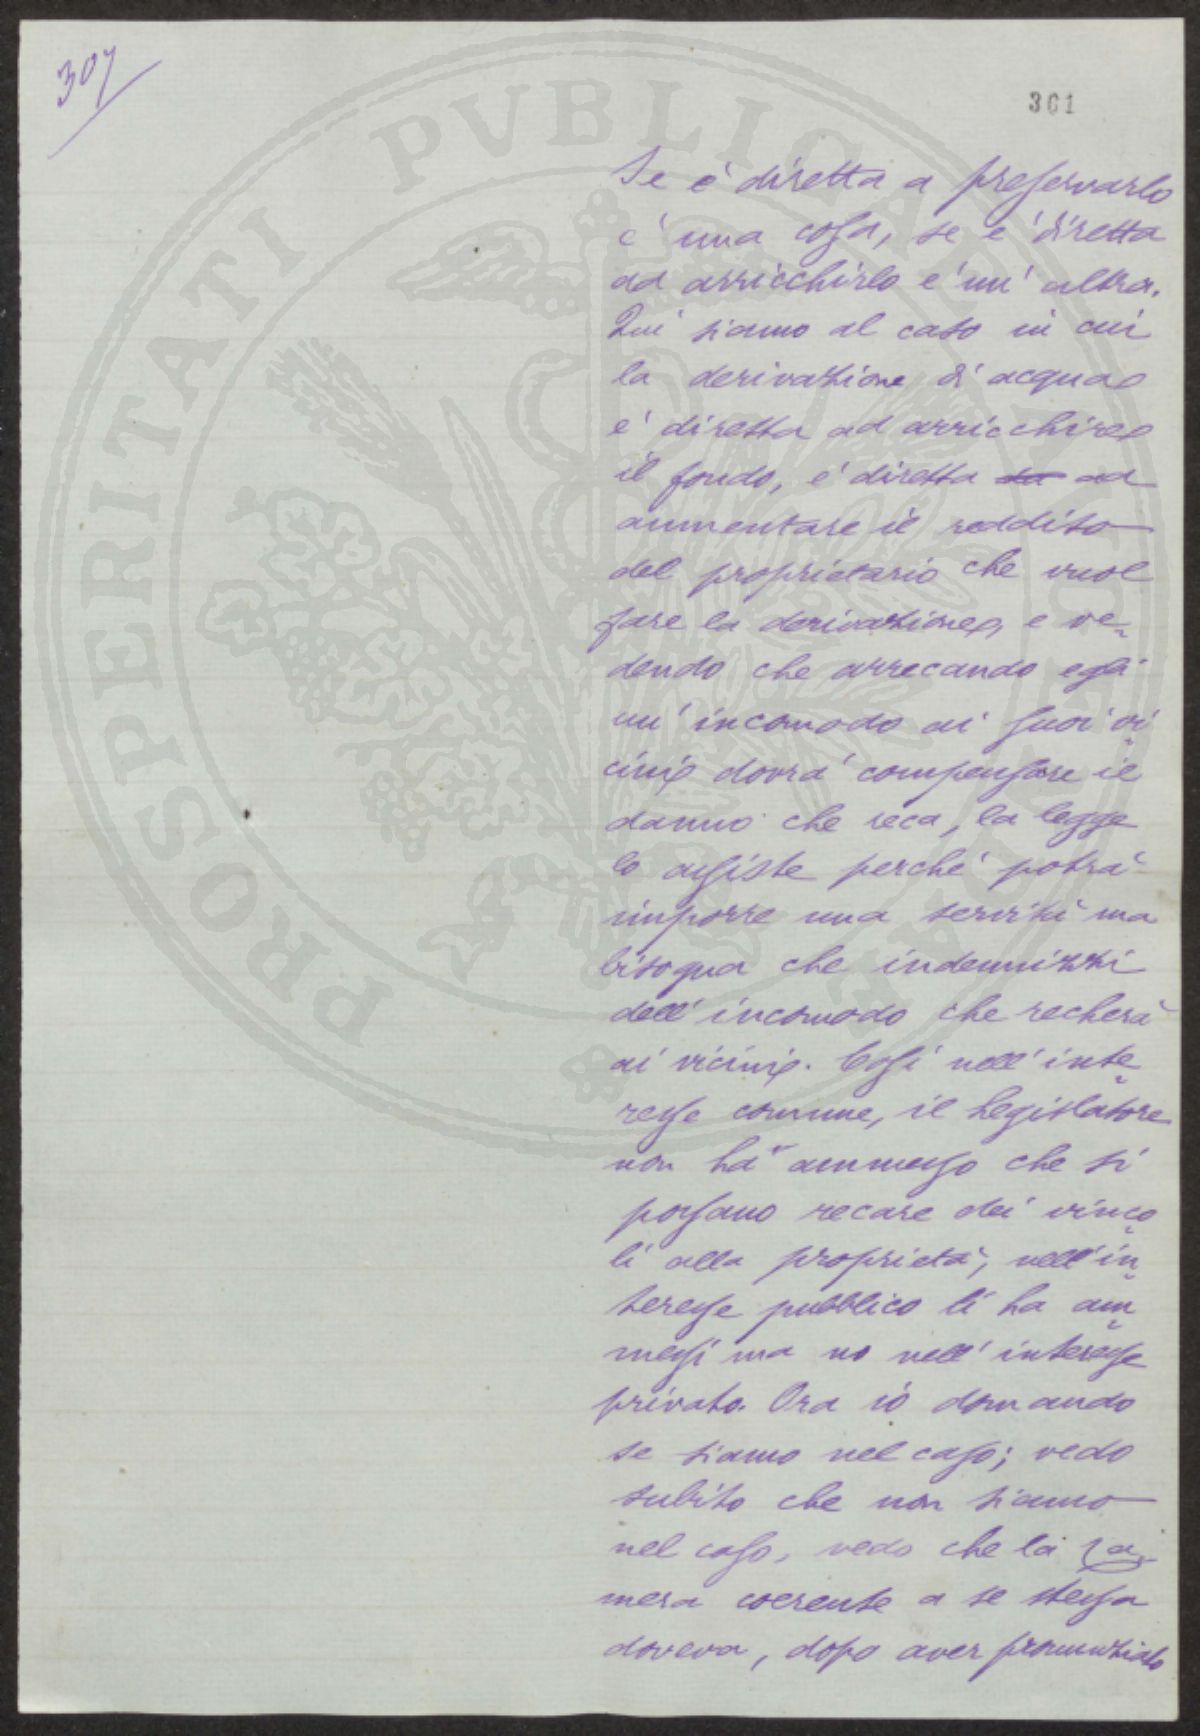 307
361
Se è diretta a preservarlo
è una cosa, se è diretta
ad arricchirlo è un' altra.
Qui siamo al caso in cui
la derivazione di acqua
è diretta ad arricchire
il fondo, è diretta da ad
aumentare il reddito
del proprietario che vuol
fare la derivazione, e ve-
dendo che arrecando egli
un' incomodo ai suoi vi
cini dovrà compensare il
danno che reca, la legge
lo assiste perché potrà
imporre una servitù ma
bisogna che indennizzi
dell' incomodo che recherà
ai vicini. Così nell' inte
resse comune, il legislatore
non ha ammesso che si
possano recare dei vinco
li alla proprietà, nell' in
teresse pubblico li ha am
messi ma no nell' interesse
privato. Ora io domando
se siamo nel caso; vedo
subito che non siamo
nel caso, vedo che la Ca-
mera coerente a se stessa
doveva, dopo aver pronunziato
PROSPERITATI PVBLICAE AVGENDAE